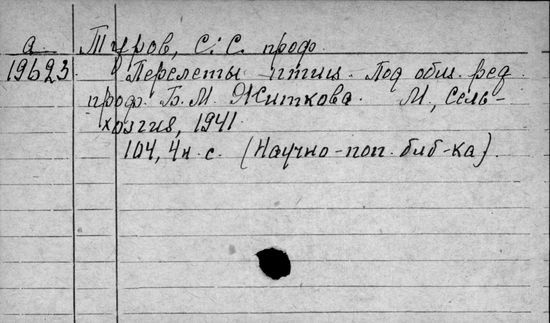 а Туров, С. С. проф.
19623 Перелеты птиц. Под общ. ред.
проф. Б. М. Житкова. М., Сель-
хозгиз, 1941.
104, 4 н. с. (Научно-поп. биб-ка).